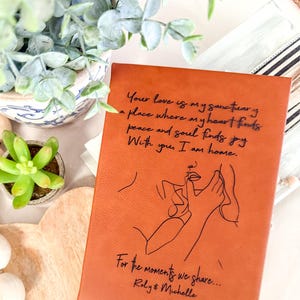 Your love is my sanctuary
a place where my heart finds
peace and soul finds joy
With you I am home.
For the moments we share...
Roly & Michelle